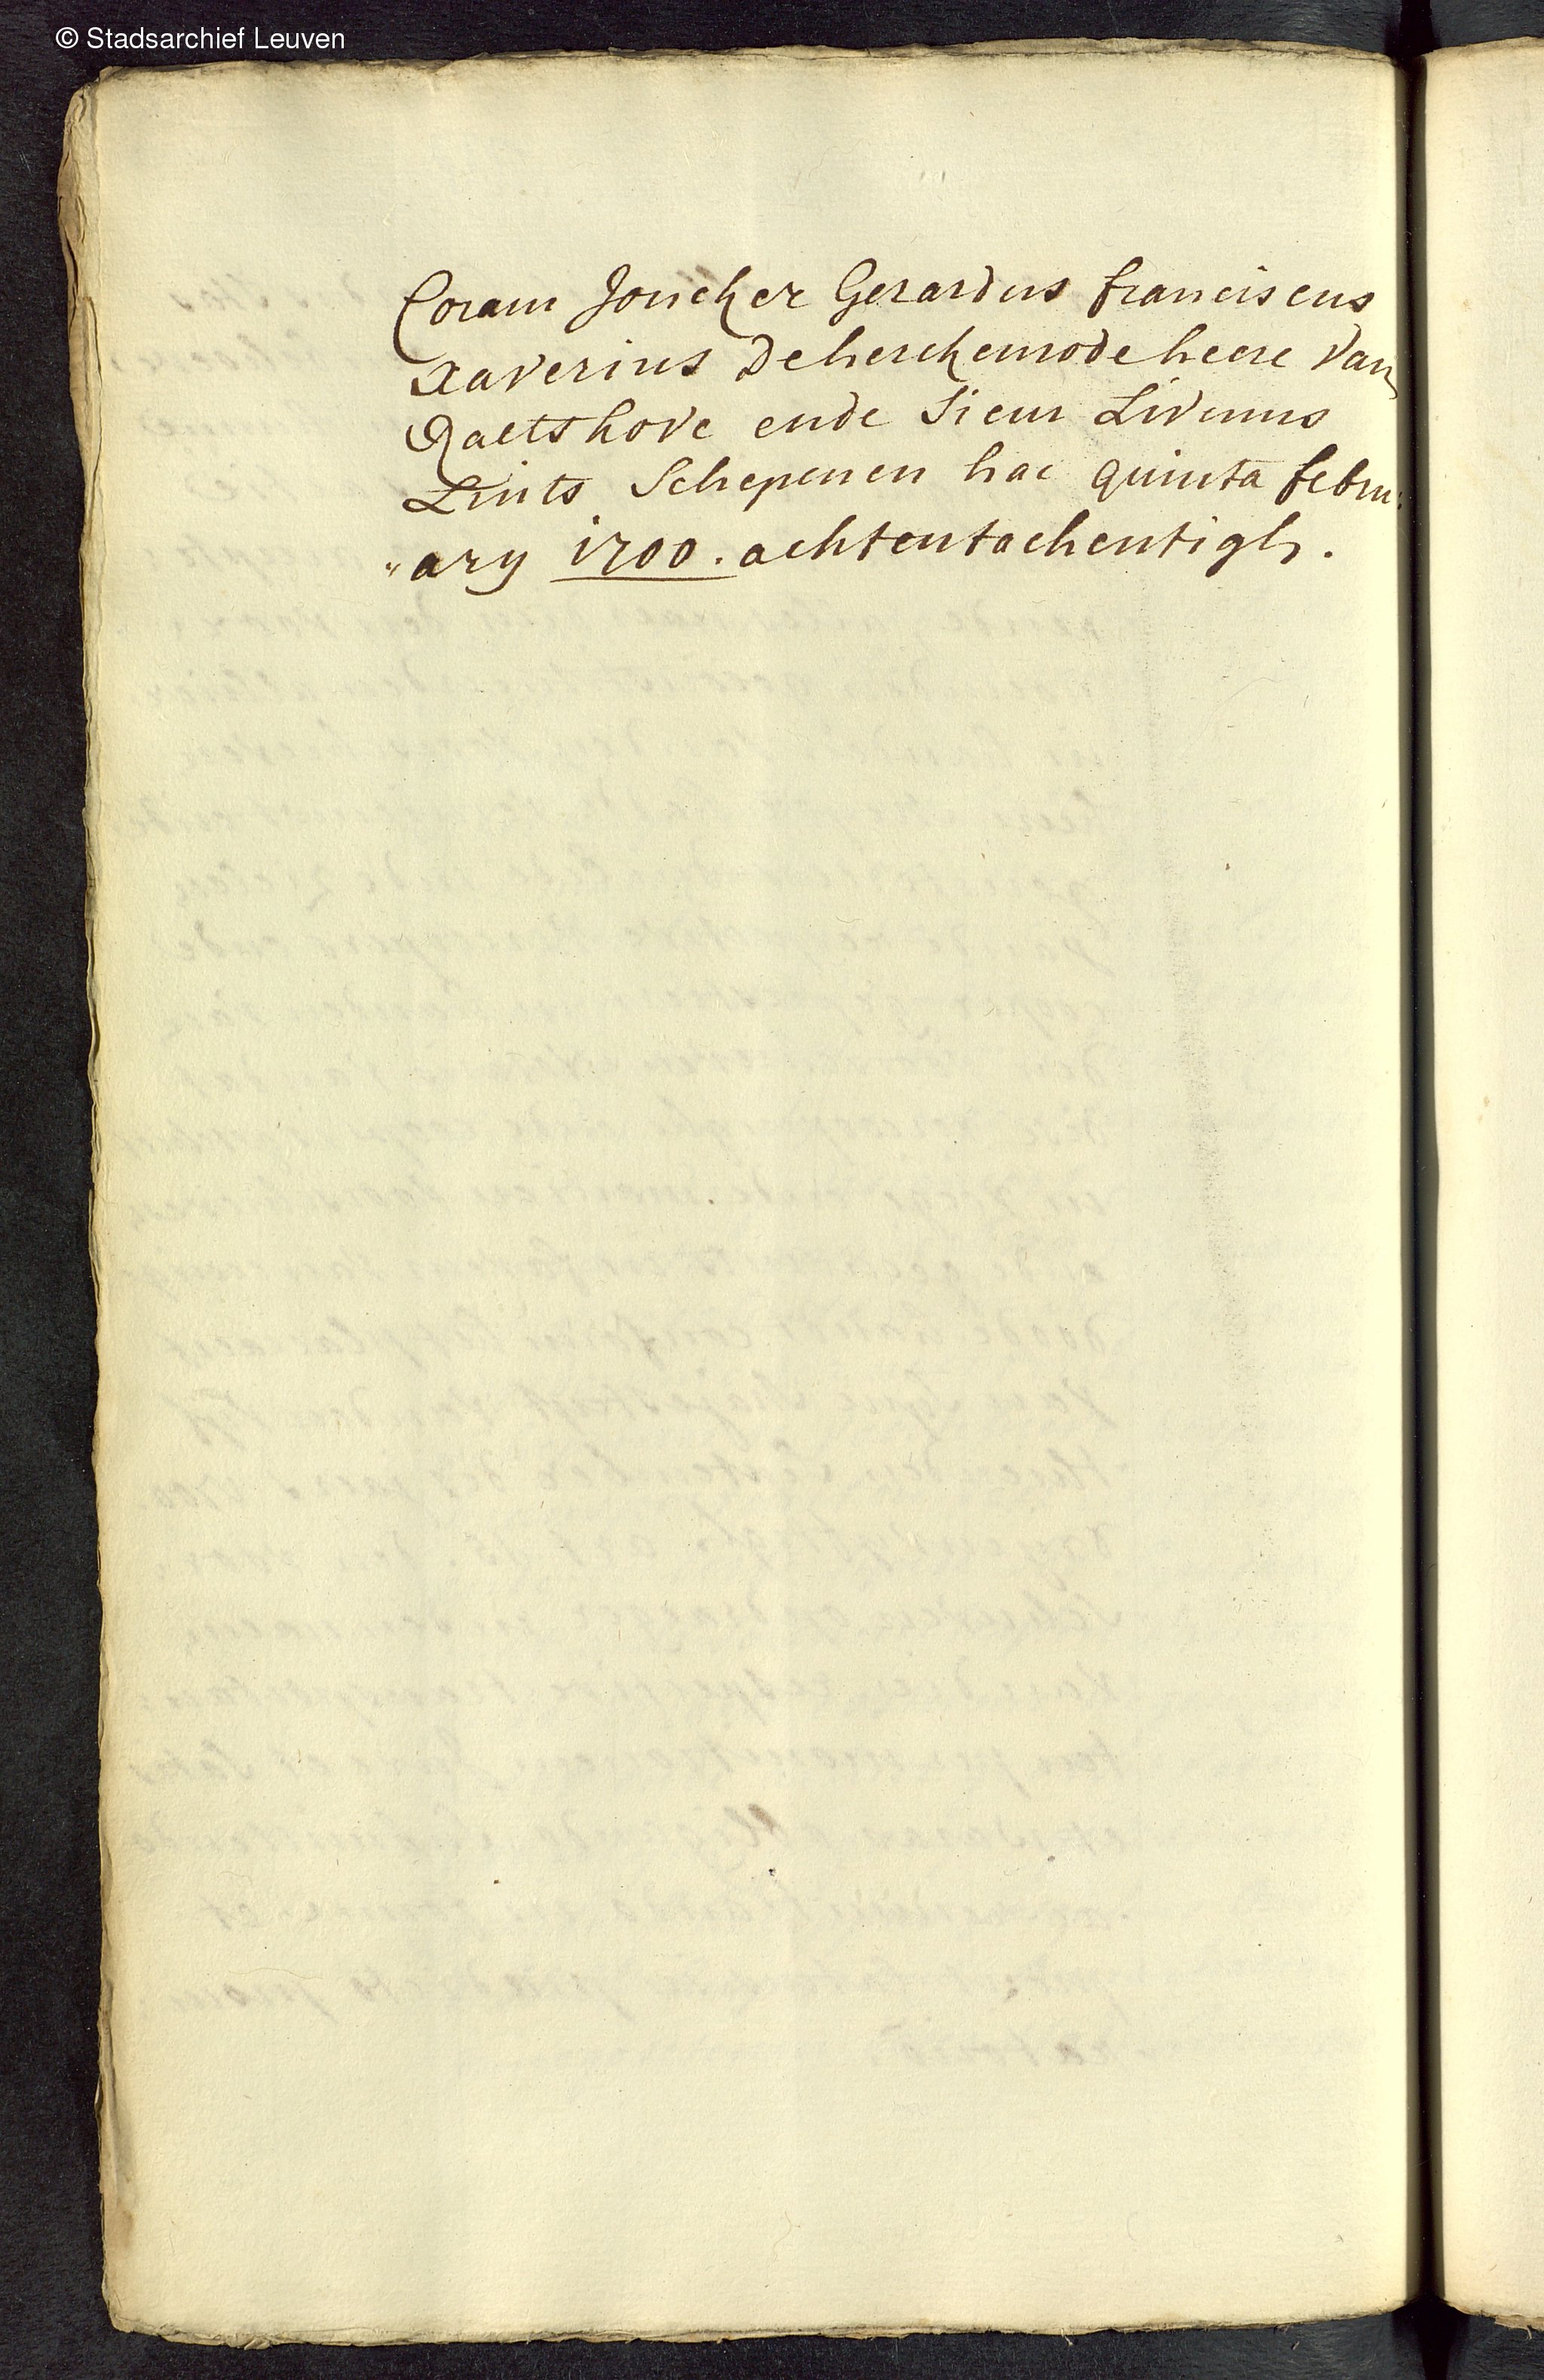 © Stadsarchief Leuven
Coram Joncker Gerardus franciscus
Xaverius De herckenrode heere van
Raetshove ende Sieur Livinus
Lints Schepenen hac quinta febru:
"ary 1700. achtentachentigh.